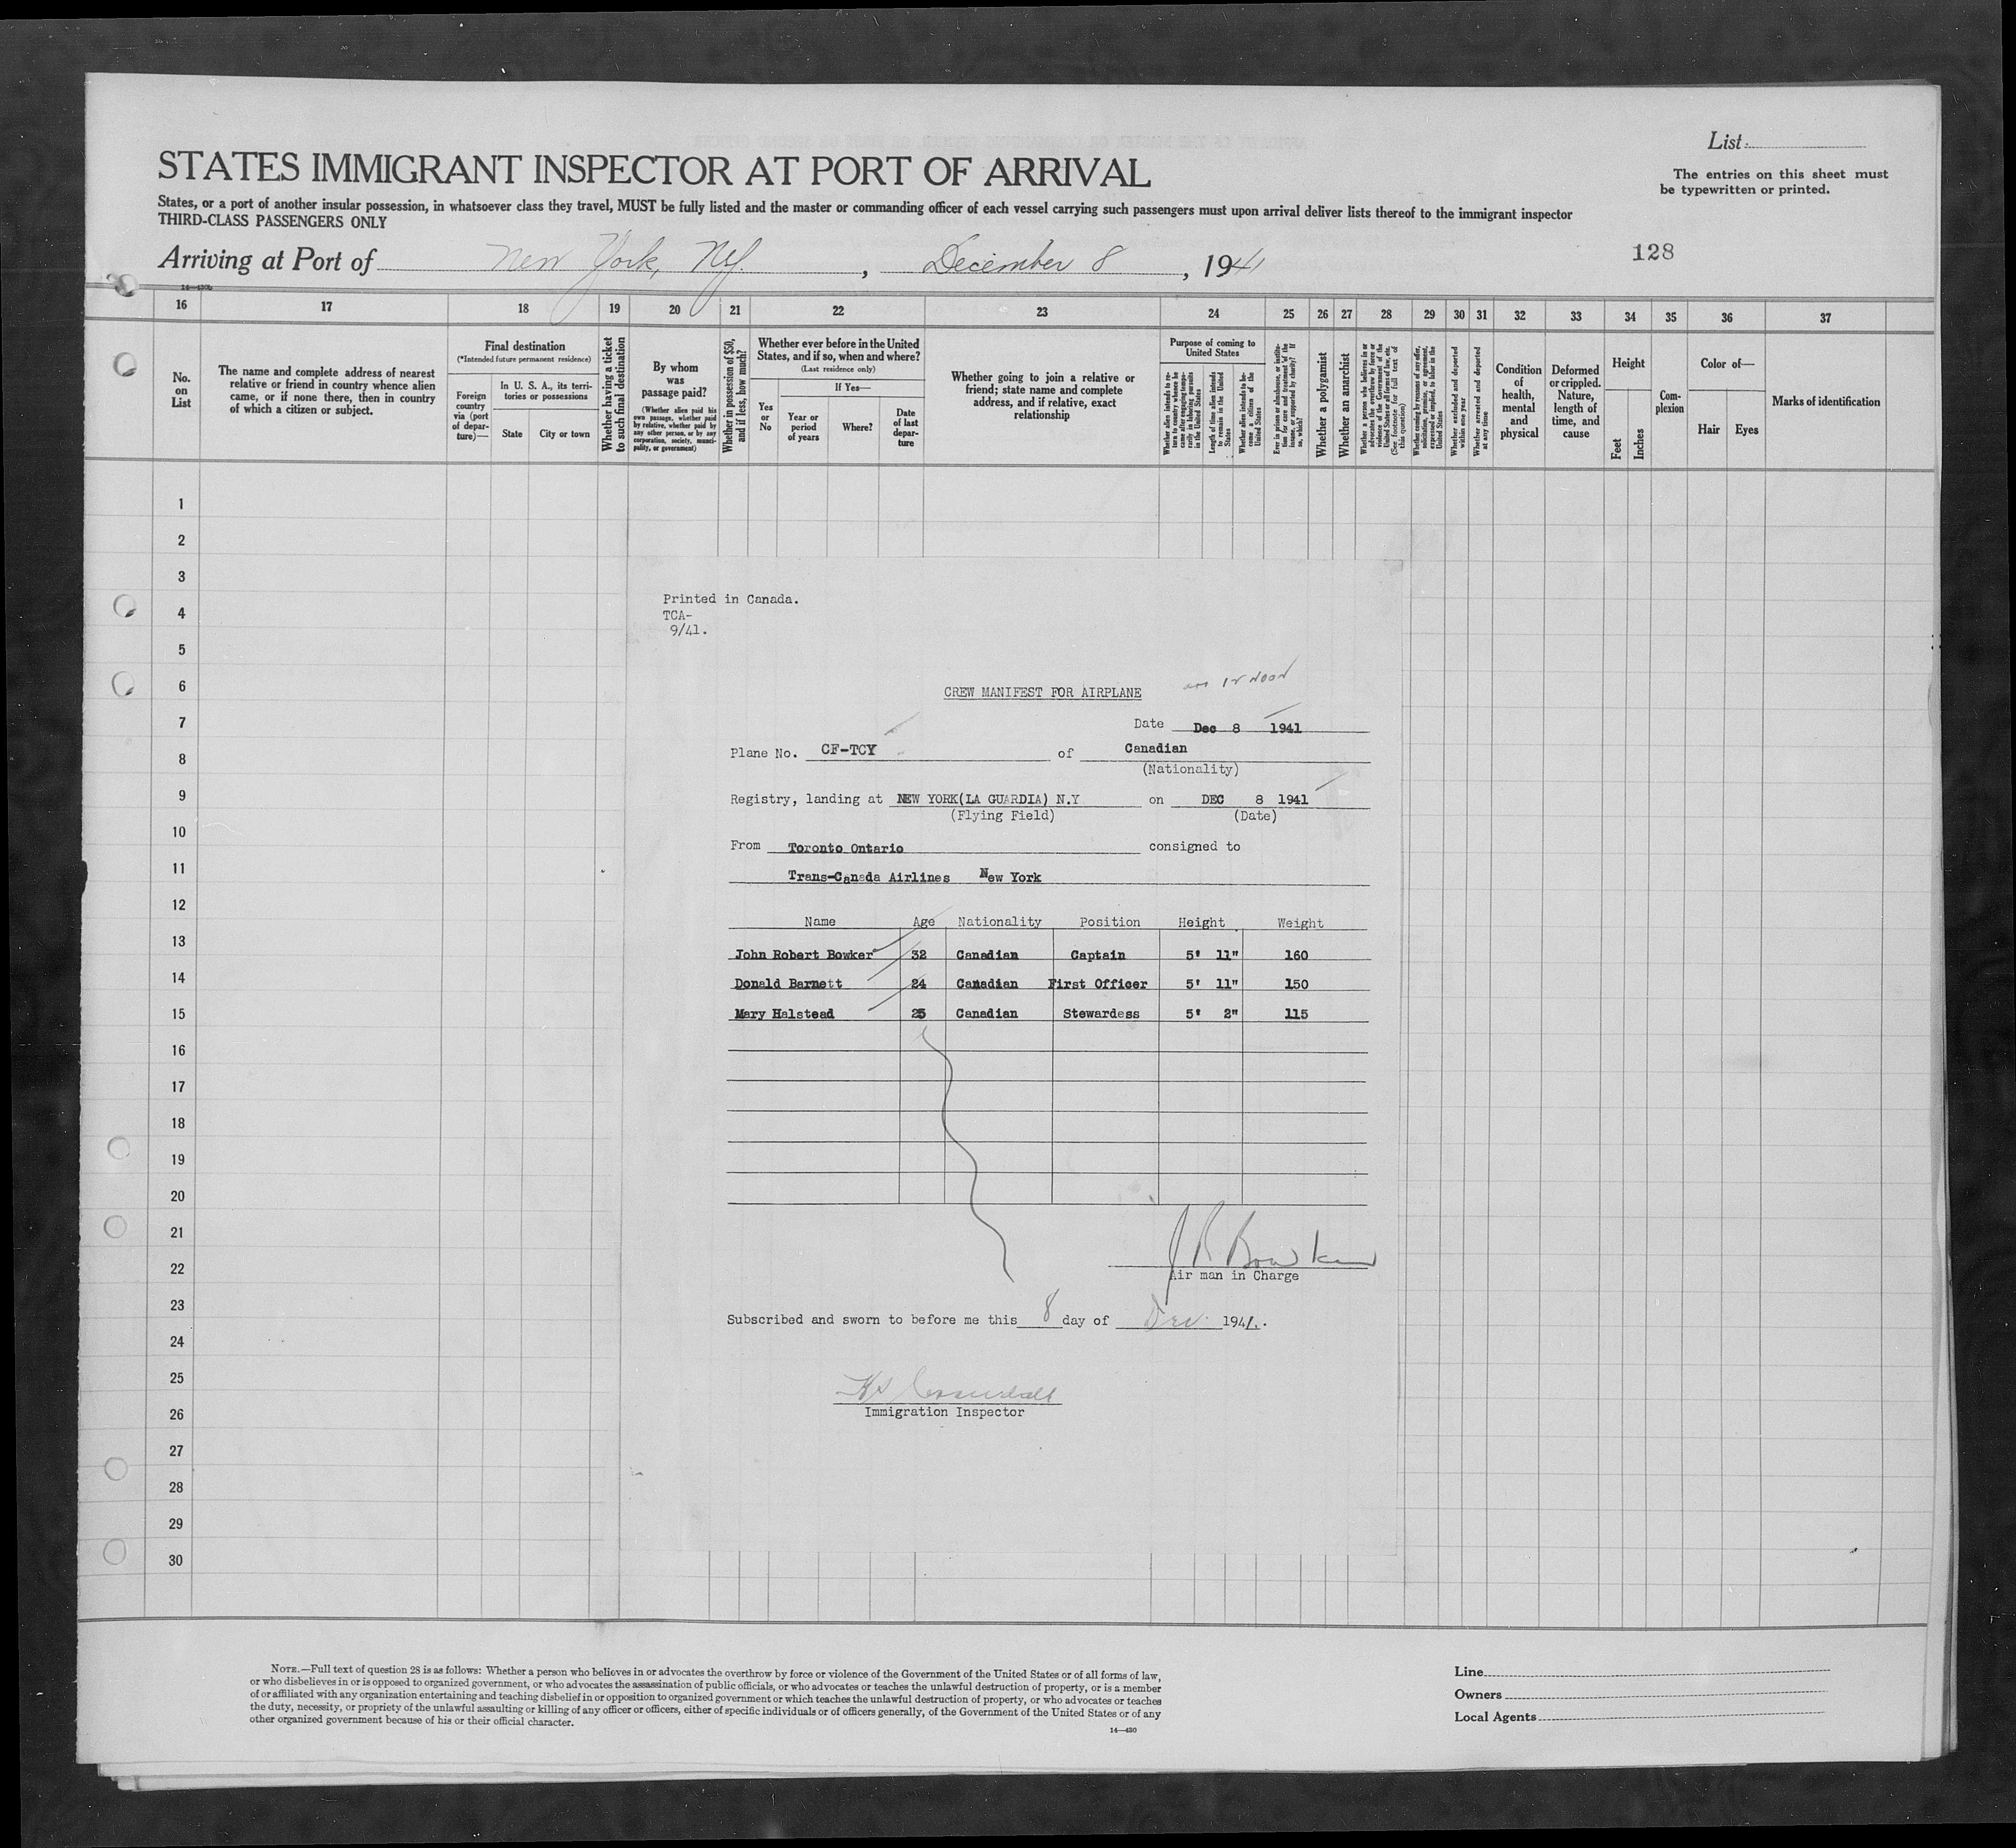 List
STATES IMMIGRANT INSPECTOR AT PORT OF ARRIVAL
The entries on this sheet must
be typewritten or printed.
States, or a port of another insular possession, in whatsoever class they travel, MUST be fully listed and the master or commanding officer of each vessel carrying such passengers must upon arrival deliver lists thereof to the immigrant inspector
THIRD-CLASS PASSENGERS ONLY
Arriving at Port of New York, NY. , December 8 , 1941
128
16 17 18 19 20 21 22 23 24 25 26 27 28 29 30 31 32 33 34 35 36 37
No.
on
List
The name and complete address of nearest
relative or friend in country whence alien
came, or if none there, then in country
of which a citizen or subject.
Final destination
(*Intended future permanent residence)
Foreign
country
via (port
of depar-
ture)—
In U. S. A., its terri-
tories or possessions
State
City or town
Whether having a ticket
to such final destination
By whom
was
passage paid?
(Whether alien paid his
own passage, whether paid
by relative, whether paid by
any other person, or by any
corporation, society, munici-
pality, or government)
Whether in possession of $50,
and if less, how much?
Whether ever before in the United
States, and if so, when and where?
(Last residence only)
Yes
or
No
If Yes—
Year or
period
of years
Where?
Date
of last
depar-
ture
Whether going to join a relative or
friend; state name and complete
address, and if relative, exact
relationship
Purpose of coming to
United States
Whether alien intends to re-
turn to country whence he
came after engaging tempo-
rarily in laboring pursuits
in the United States
Length of time alien intends
to remain in the United
States
Whether alien intends to be-
come a citizen of the
United States
Ever in prison or almshouse, or institu-
tion for care and treatment of the
insane, or supported by charity? If
so, which?
Whether a polygamist
Whether an anarchist
Whether a person who believes in or
advocates the overthrow by force or
violence of the Government of the
United States or all forms of law, etc.
(See footnote for full text of
this question)
Whether coming by reason of any offer,
solicitation, promise, or agreement,
expressed or implied, to labor in the
United States
Whether excluded and deported
within one year
Whether arrested and deported
at any time
Condition
of
health,
mental
and
physical
Deformed
or crippled.
Nature,
length of
time, and
cause
Height
Feet
Inches
Com-
plexion
Color of—
Hair
Eyes
Marks of identification
1
2
3
4
5
6
7
8
9
10
11
12
13
14
15
16
17
18
19
20
21
22
23
24
25
26
27
28
29
30
Printed in Canada.
TCA-
9/41.
CREW MANIFEST FOR AIRPLANE
Date Dec 8 1941
Plane No. CF-TCY of Canadian
(Nationality)
Registry, landing at NEW YORK(LA GUARDIA) N.Y on DEC 8 1941
(Flying Field) (Date)
From Toronto Ontario consigned to
Trans-Canada Airlines New York
Name Age Nationality Position Height Weight
John Robert Bowker 32 Canadian Captain 5' 11" 160
Donald Barnett 24 Canadian First Officer 5' 11" 150
Mary Halstead 25 Canadian Stewardess 5' 2" 115
J R Bowker
Air man in Charge
Subscribed and sworn to before me this 8 day of Dec. 1941.
Immigration Inspector
NOTE.—Full text of question 28 is as follows: Whether a person who believes in or advocates the overthrow by force or violence of the Government of the United States or of all forms of law,
or who disbelieves in or is opposed to organized government, or who advocates the assassination of public officials, or who advocates or teaches the unlawful destruction of property, or is a member
of or affiliated with any organization entertaining and teaching disbelief in or opposition to organized government or which teaches the unlawful destruction of property, or who advocates or teaches
the duty, necessity, or propriety of the unlawful assaulting or killing of any officer or officers, either of specific individuals or of officers generally, of the Government of the United States or of any
other organized government because of his or their official character.
14—430
Line
Owners
Local Agents